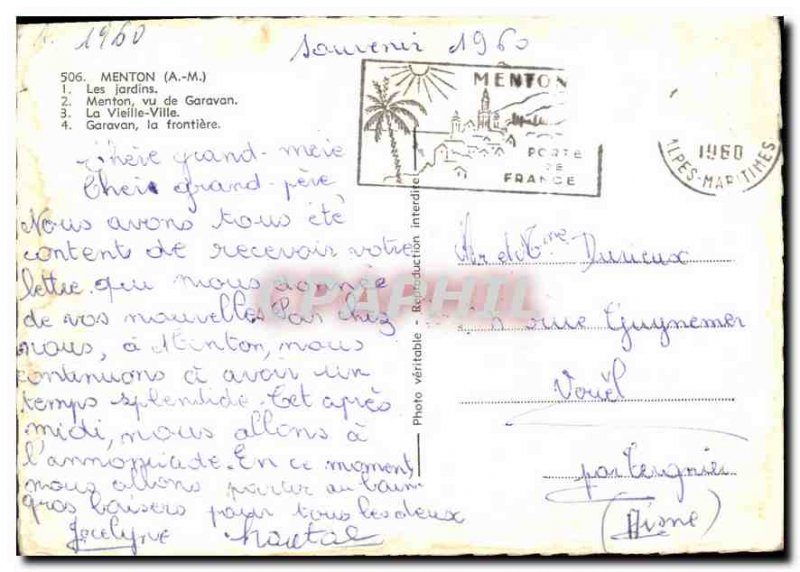 1960
Souvenir 1960
506. MENTON (A.-M.)
1. Les jardins.
2. Menton, vu de Garavan.
3. La Vieille-Ville.
4. Garavan, la frontière.
MENTON
PORTE
DE
FRANCE
1960
ALPES-MARITIMES
Chère grand-mère
Cher grand-père
Nous avons tous été
content de recevoir votre
lettre qui nous donnée
de vos nouvelles. Par chez
nous, à Menton, nous
continuons à avoir un
temps splendide. Cet après
midi, nous allons à
l'annoniade. En ce moment
nous allons partir au bain
gros baisers pour tous les deux
Jocelyne Chantal
Photo véritable - Reproduction interdite
Mr et Mme Durieux
rue Guynemer
Vouël
par Tergnier
(Aisne)
CPAPHIL